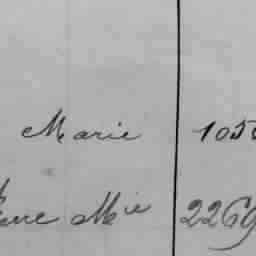 Marie 105
Mie 2269